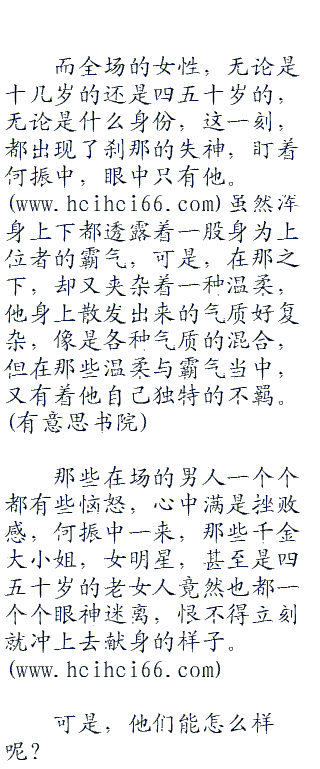 而全场的女性，无论是
十几岁的还是四五十岁的，
无论是什么身份，这一刻，
都出现了刹那的失神，盯着
何振中，眼中只有他。
(www.hcihci66.com)虽然浑
身上下都透露着一股身为上
位者的霸气，可是，在那之
下，却又夹杂着一种温柔，
他身上散发出来的气质好复
杂，像是各种气质的混合，
但在那些温柔与霸气当中，
又有着他自己独特的不羁。
(有意思书院)
那些在场的男人一个个
都有些恼怒，心中满是挫败
感，何振中一来，那些千金
大小姐，女明星，甚至是四
五十岁的老女人竟然也都一
个个眼神迷离，恨不得立刻
就冲上去献身的样子。
(www.hcihci66.com)
可是，他们能怎么样
呢？